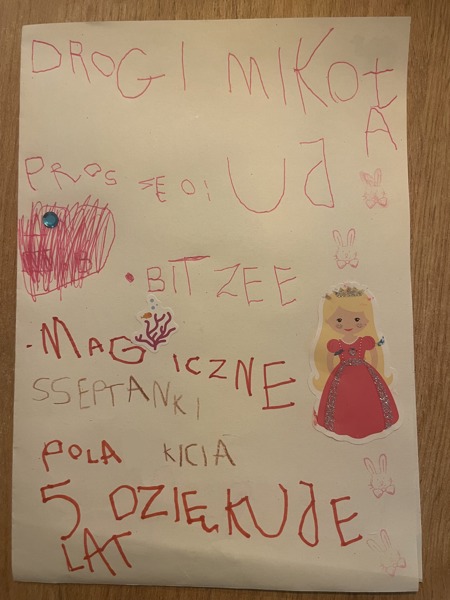 DROGI MIKOŁ
A
PROSĘ O: UJ
• BITZEE
-MAGICZNE
SSEPTANKI
POLA KICIA
5 DZIĘKUJE
LAT